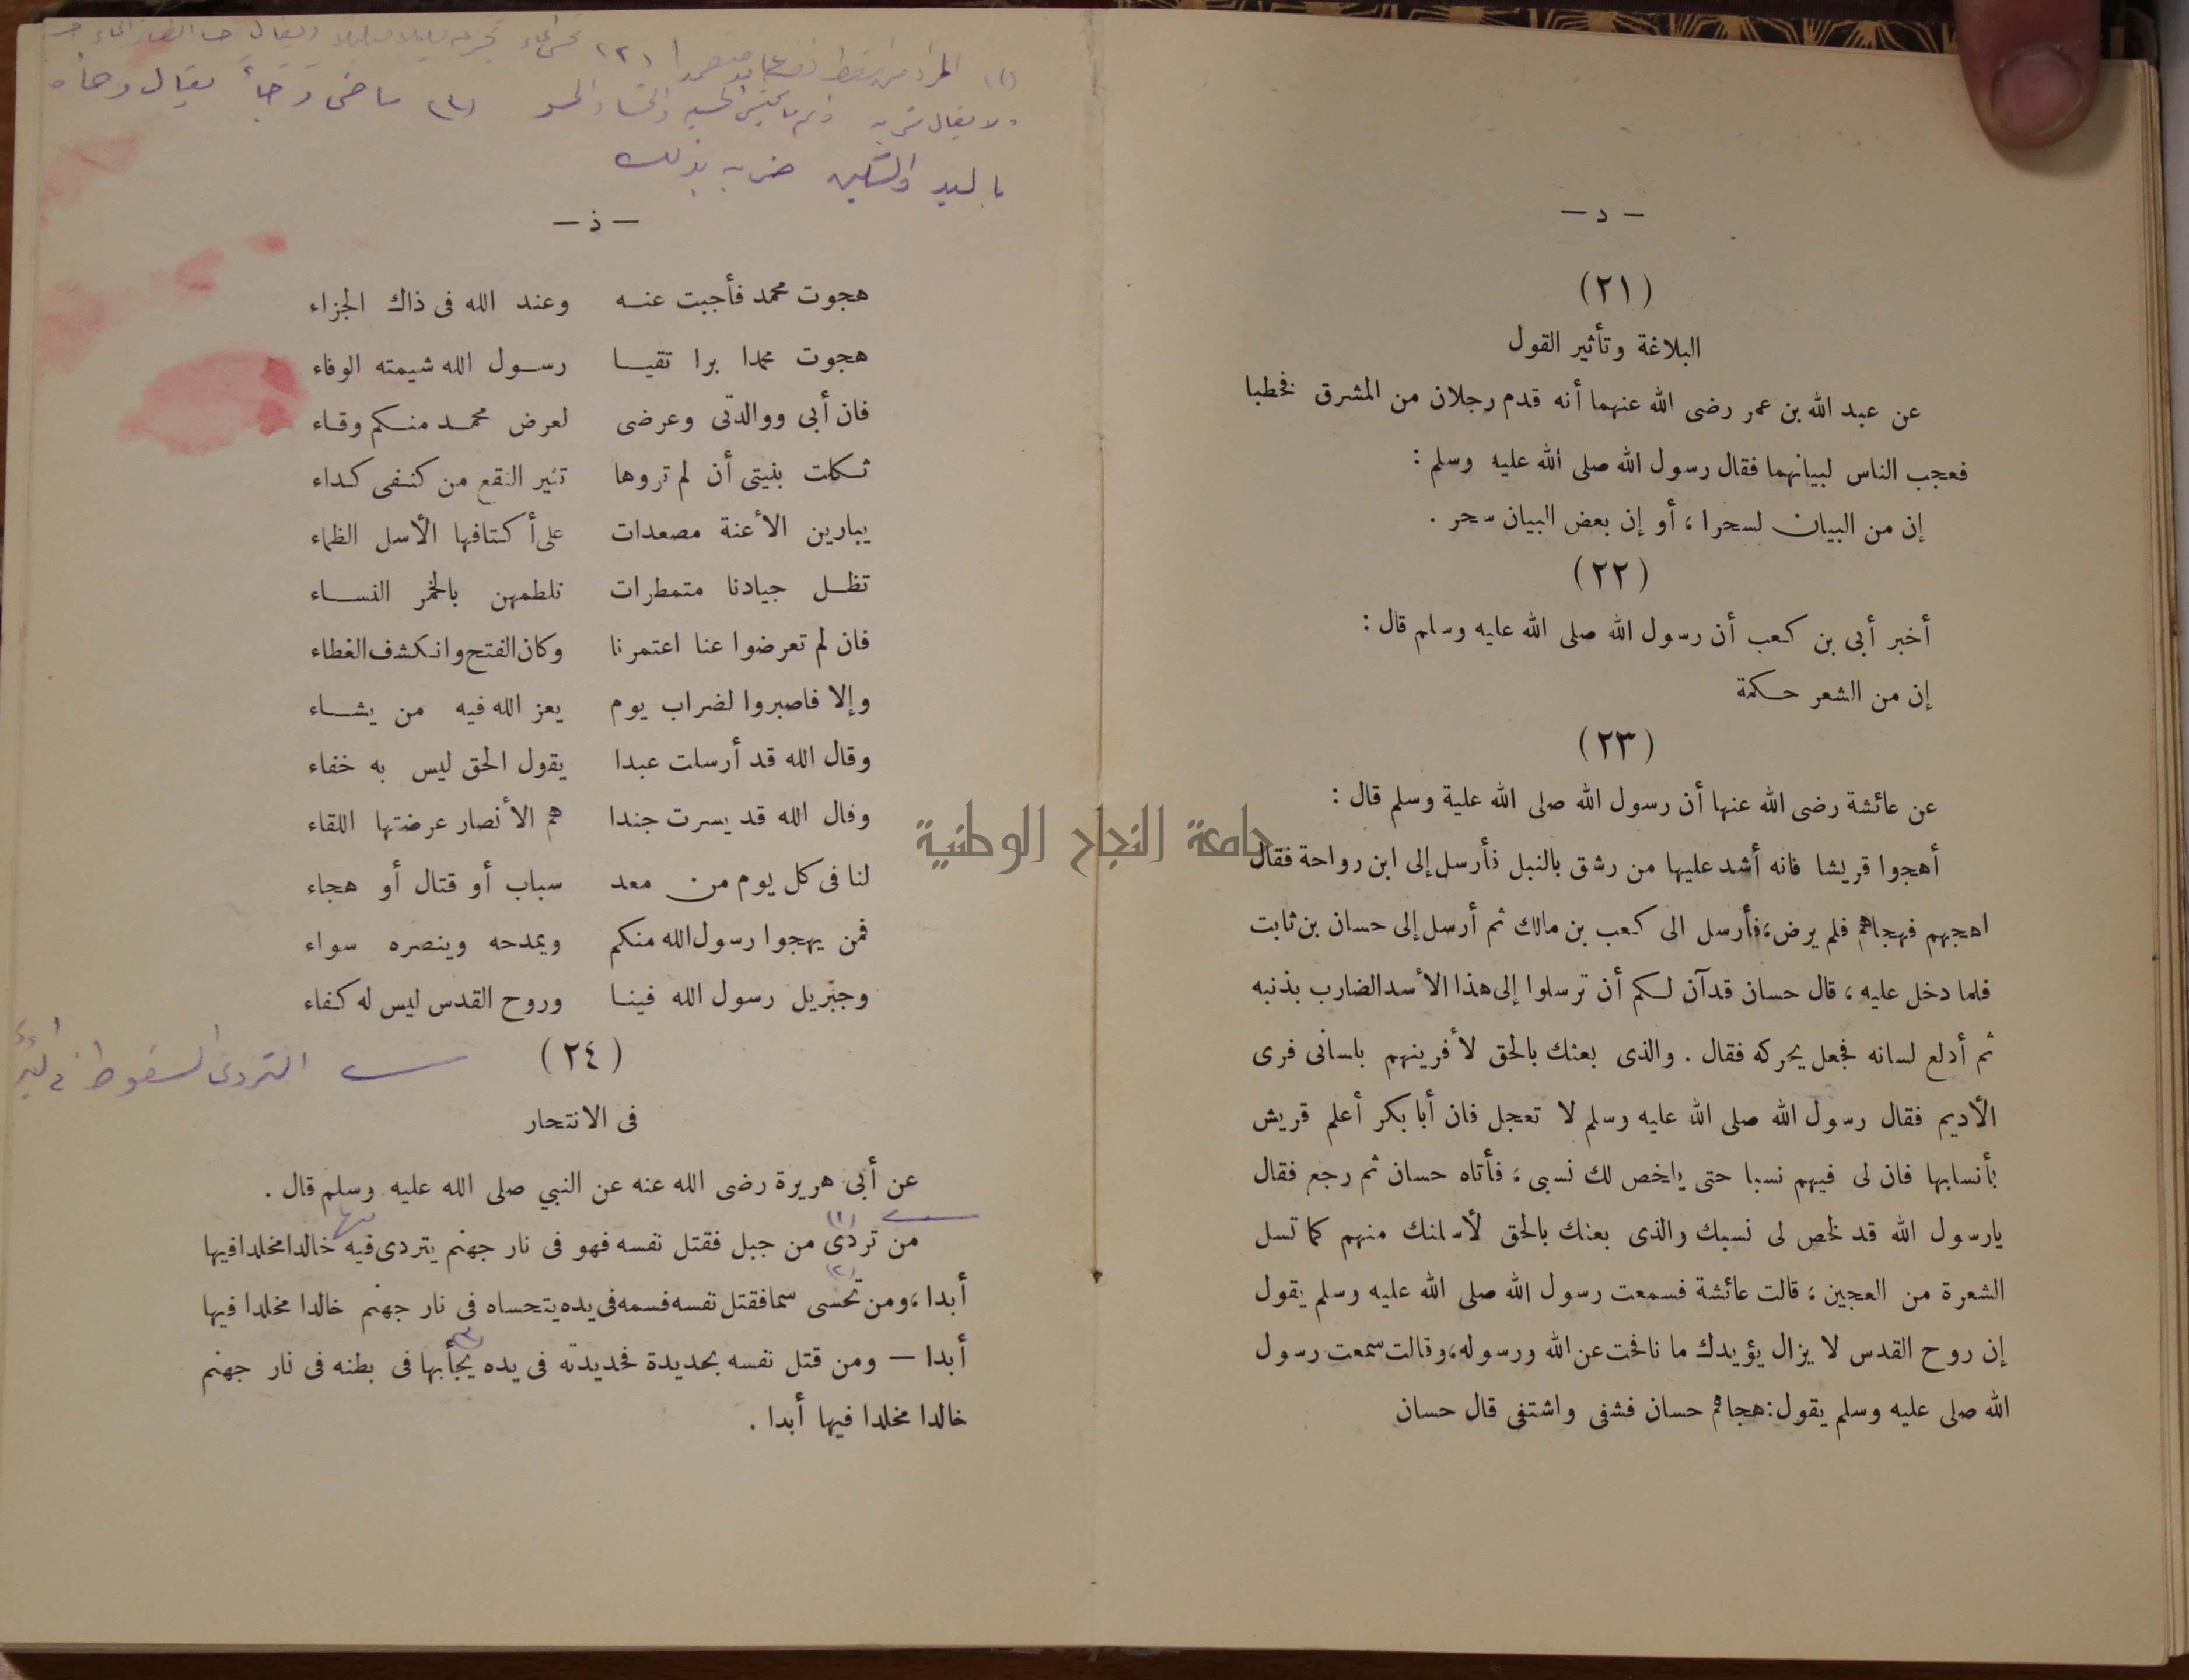 — د —
(٢١)
البلاغة وتأثير القول
عن عبد الله بن عمر رضى الله عنهما أنه قدم رجلان من المشرق فخطبا
فعجب الناس لبيانهما فقال رسول الله صلى الله عليه وسلم :
إن من البيان لسحرا ، أو إن بعض البيان سحر .
(٢٢)
أخبر أبى بن كعب أن رسول الله صلى الله عليه وسلم قال :
إن من الشعر حكمة
(٢٣)
عن عائشة رضى الله عنها أن رسول الله صلى الله علية وسلم قال :
أهجوا قريشا فانه أشد عليها من رشق بالنبل فأرسل إلى ابن رواحة فقال
اهجهم فهجاهم فلم يرض ، فأرسل الى كعب بن مالك ثم أرسل إلى حسان بن ثابت
فلما دخل عليه ، قال حسان قد آن لكم أن ترسلوا إلى هذا الأسد الضارب بذنبه
ثم أدلع لسانه فجعل يحركه فقال . والذى بعثك بالحق لأفرينهم بلسانى فرى
الأديم فقال رسول الله صلى الله عليه وسلم لا تعجل فان أبا بكر أعلم قريش
بأنسابها فان لى فيهم نسبا حتى يلخص لك نسبى ، فأتاه حسان ثم رجع فقال
يارسول الله قد لخص لى نسبك والذى بعثك بالحق لأسلنك منهم كما تسل
الشعرة من العجين ، قالت عائشة فسمعت رسول الله صلى الله عليه وسلم يقول
إن روح القدس لا يزال يؤيدك ما نافحت عن الله ورسوله ، وقالت سمعت رسول
الله صلى عليه وسلم يقول : هجاهم حسان فشفى واشتفى قال حسان
جامعة النجاح الوطنية
ولا يقال شربه
باليد والسكين ضربه بذلك
— ذ —
هجوت محمد فأجبت عنه وعند الله فى ذاك الجزاء
هجوت محمدا برا تقيا رسول الله شيمته الوفاء
فان أبى ووالدتى وعرضى لعرض محمد منكم وقاء
ثكلت بنيتى أن لم تروها تثير النقع من كنفى كداء
يبارين الأعنة مصعدات على أكتافها الأسل الظماء
تظل جيادنا متمطرات تلطمهن بالخمر النساء
فان لم تعرضوا عنا اعتمرنا وكان الفتح وانكشف الغطاء
وإلا فاصبروا لضراب يوم يعز الله فيه من يشاء
وقال الله قد أرسلت عبدا يقول الحق ليس به خفاء
وقال الله قد يسرت جندا هم الأنصار عرضتها اللقاء
لنا فى كل يوم من معد سباب أو قتال أو هجاء
فمن يهجوا رسول الله منكم ويمدحه وينصره سواء
وجبريل رسول الله فينا وروح القدس ليس له كفاء
(٢٤)
التردى السقوط فى البئر
فى الانتحار
عن أبى هريرة رضى الله عنه عن النبي صلى الله عليه وسلم قال .
من تردى (١) من جبل فقتل نفسه فهو فى نار جهنم يتردى فيه فيها خالدا مخلدا فيها
أبدا ، ومن تحسى (٢) سما فقتل نفسه فسمه فى يده يتحساه فى نار جهنم خالدا مخلدا فيها
أبدا — ومن قتل نفسه بحديدة فحديدته فى يده يجأ (٣) بها فى بطنه فى نار جهنم
خالدا مخلدا فيها أبدا .